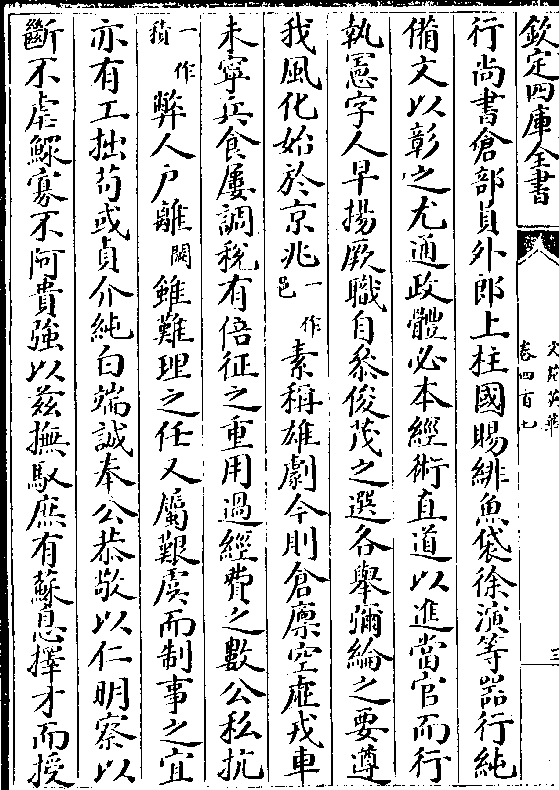 欽定四庫全書
文苑英華
卷四百七
三
行尚書倉部員外郎上柱國賜緋魚袋徐演等器行純
備文以彰之尤通政體必本經術直道以進當官而行
執憲字人早揚厥職自黍俊茂之選各舉彌綸之要遵
我風化始於京兆一作邑素稱雄劇今則倉廩空虛戎車
未寧兵食屢調税有倍征之重用過經費之數公私抗
一作積弊人户離闕雖難理之任又屬艱虞而制事之宜
亦有工拙苟或貞介純白端誠奉公恭敬以仁明察以
斷不虐鰥寡不阿貴強以兹撫馭庶有蘇息擇才而授